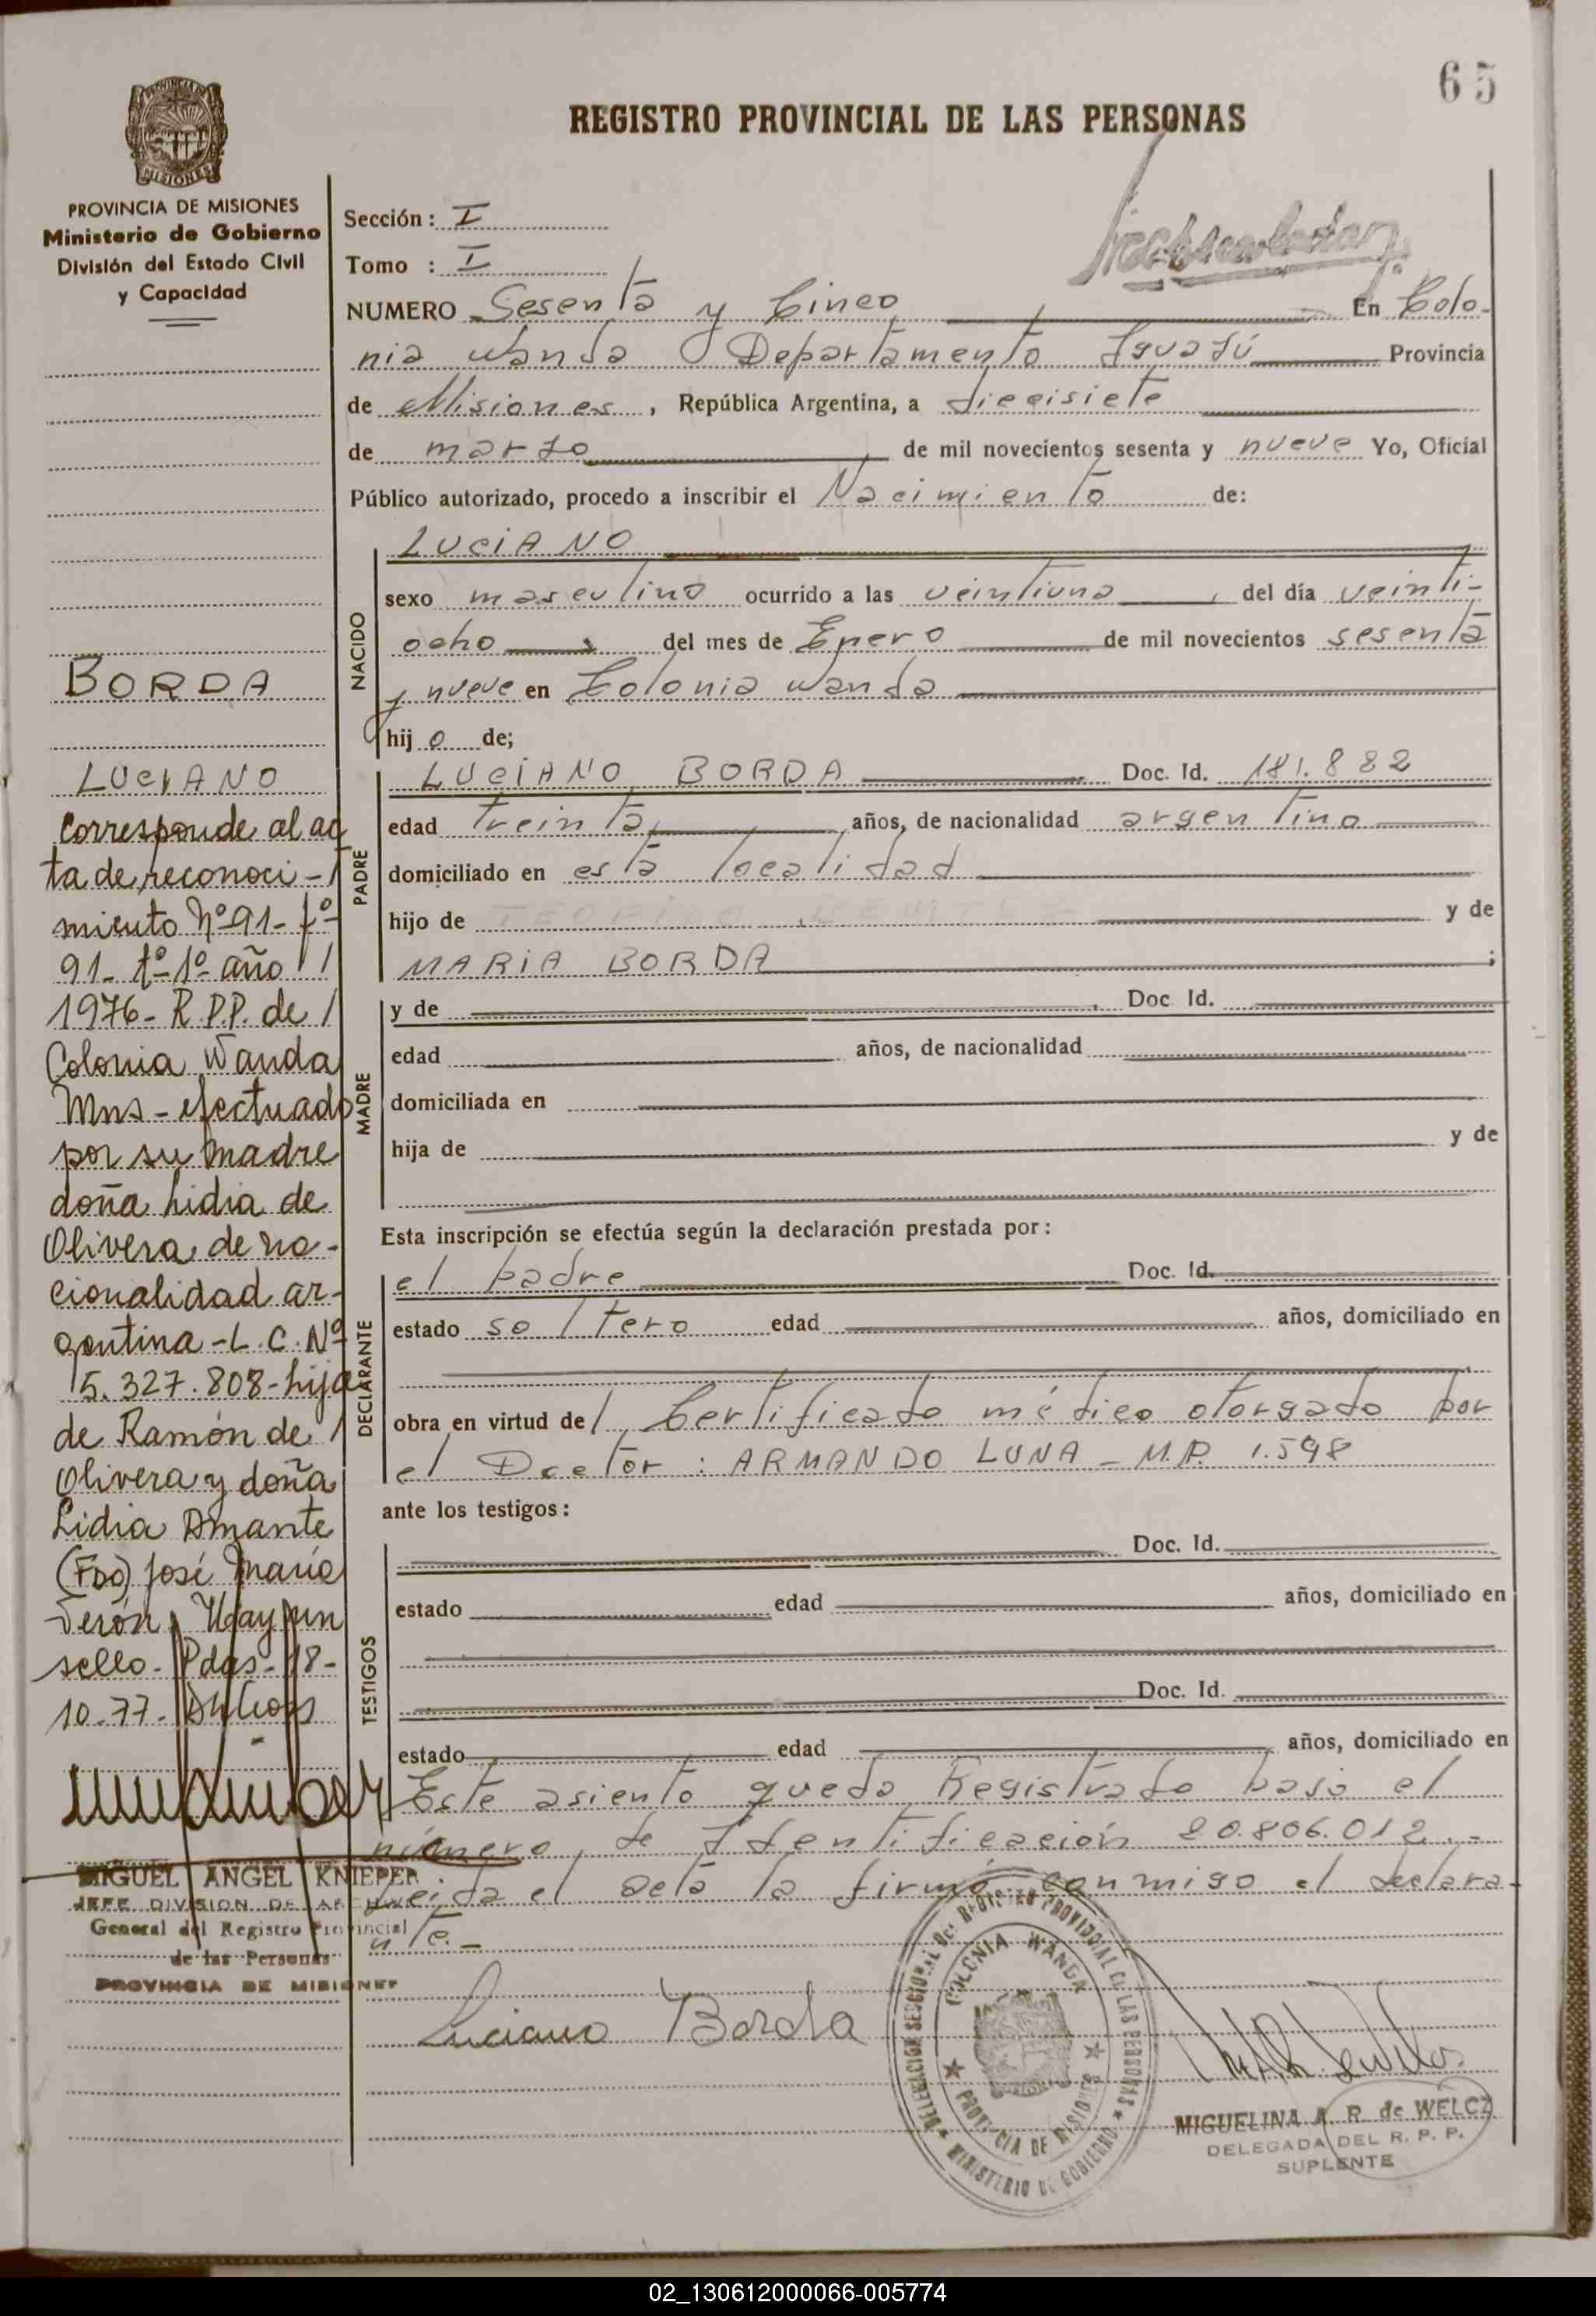 65
REGISTRO PROVINCIAL DE LAS PERSONAS
PROVINCIA DE MISIONES
Ministerio de Gobierno
División del Estado Civil
y Capacidad
Sección: I
Tomo : I
NUMERO Sesenta y Cinco En Colo-
nia Wanda Departamento Iguazú Provincia
de Misiones, República Argentina, a diecisiete
de marzo de mil novecientos sesenta y nueve Yo, Oficial
Público autorizado, procedo a inscribir el Nacimiento de:
NACIDO
LUCIANO
sexo masculino ocurrido a las veintiuna, del día veinti-
ocho del mes de Enero de mil novecientos sesenta
y nueve en Colonia Wanda
hijo de;
PADRE
LUCIANO BORDA Doc. Id. 181.882
edad treinta, años, de nacionalidad argentino
domiciliado en esta localidad
hijo de y de
MARIA BORDA ;
MADRE
y de Doc. Id.
edad años, de nacionalidad
domiciliada en
hija de y de
Esta inscripción se efectúa según la declaración prestada por:
DECLARANTE
el padre Doc. Id.
estado soltero edad años, domiciliado en
obra en virtud del Certificado médico otorgado por
el Doctor : ARMANDO LUNA - M.P. 1.598
ante los testigos:
TESTIGOS
Doc. Id.
estado edad años, domiciliado en
Doc. Id.
estado edad años, domiciliado en
Este asiento queda Registrado bajo el
número de Identificación 20.806.012.-
Leida el acta la firmó conmigo el declara-
nte.-
Luciano Borda
DELEGACION SECCIONAL DEL REGISTRO PROVINCIAL DE LAS PERSONAS
MINISTERIO DE GOBIERNO
COLONIA WANDA
PROVINCIA DE MISIONES
MIGUELINA A. R. de WELCZ
DELEGADA DEL R. P. P.
SUPLENTE
BORDA
LUCIANO
Corresponde al ac
ta de reconoci-
miento Nº 91- fº
91- tº 1º año
1976- R.P.P. de
Colonia Wanda
Mns - efectuado
por su madre
doña Lidia de
Olivera de na-
cionalidad ar-
gentina - L.C. Nº
5.327.808- hija
de Ramón de
Olivera y doña
Lidia Amante
(Fdo) José María
Verón. Hay un
sello. Pdas- 18-
10-77-
MIGUEL ANGEL KNIEPER
JEFE DIVISION DE ARCHIVO
General del Registro Provincial
de las Personas
PROVINCIA DE MISIONES
02_130612000066-005774